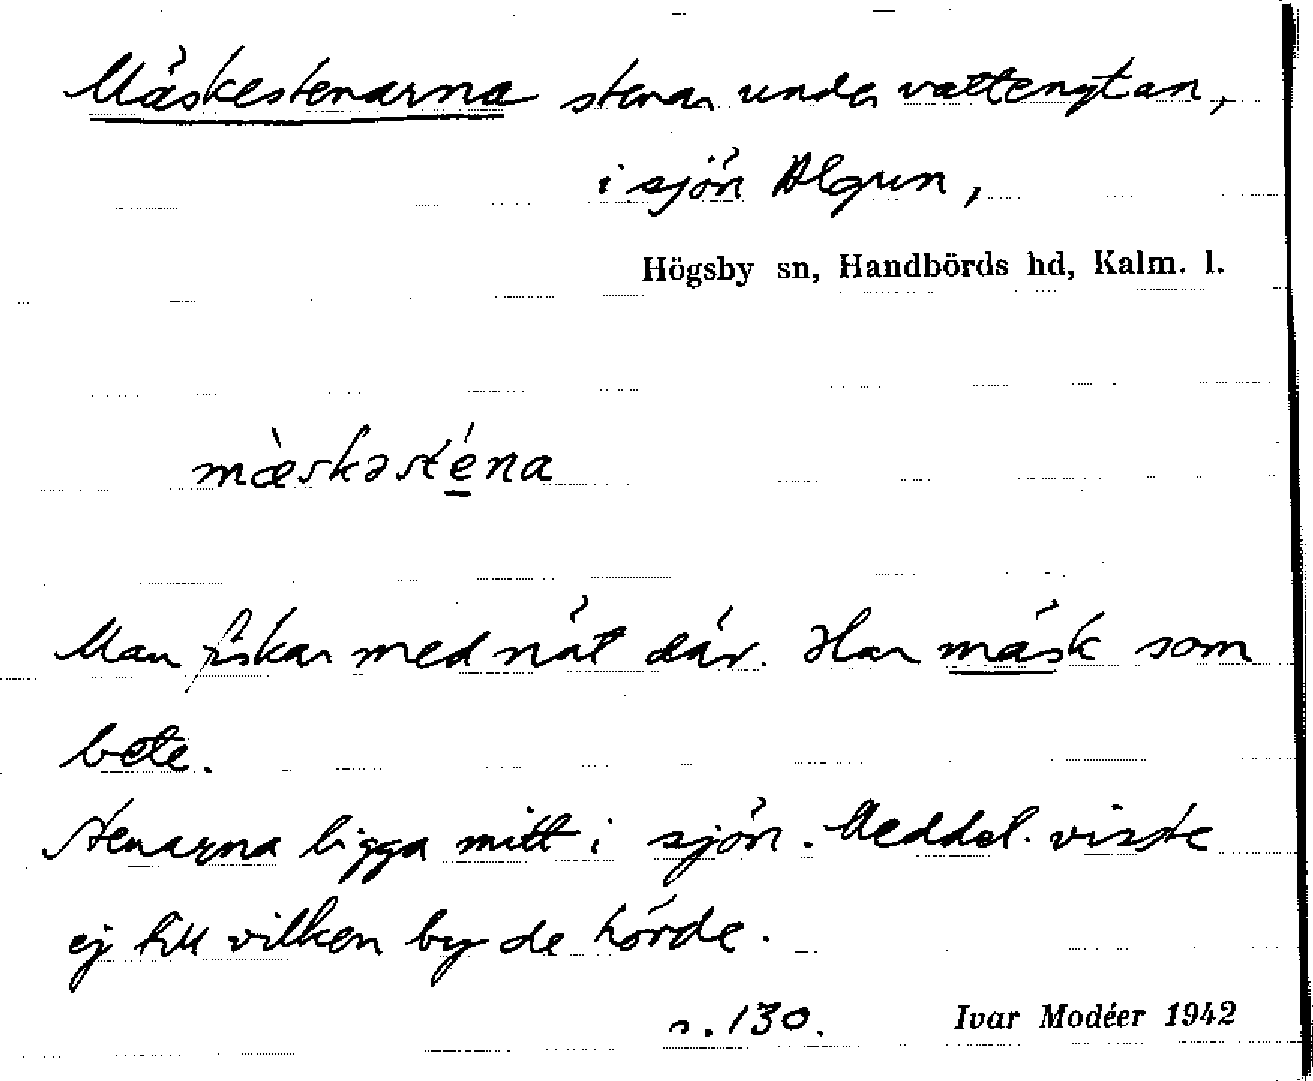 Mäskestenarna stenar under vattenytan,
i sjön Algun,
Högsby sn, Handbörds hd, Kalm. l.
mæ̀skəsté̱na
Man fiskar med nät där. Har mäsk som
bete.
Stenarna ligga mitt i sjön. Meddel. visste
ej till vilken by de hörde.
s. 130. Ivar Modéer 1942